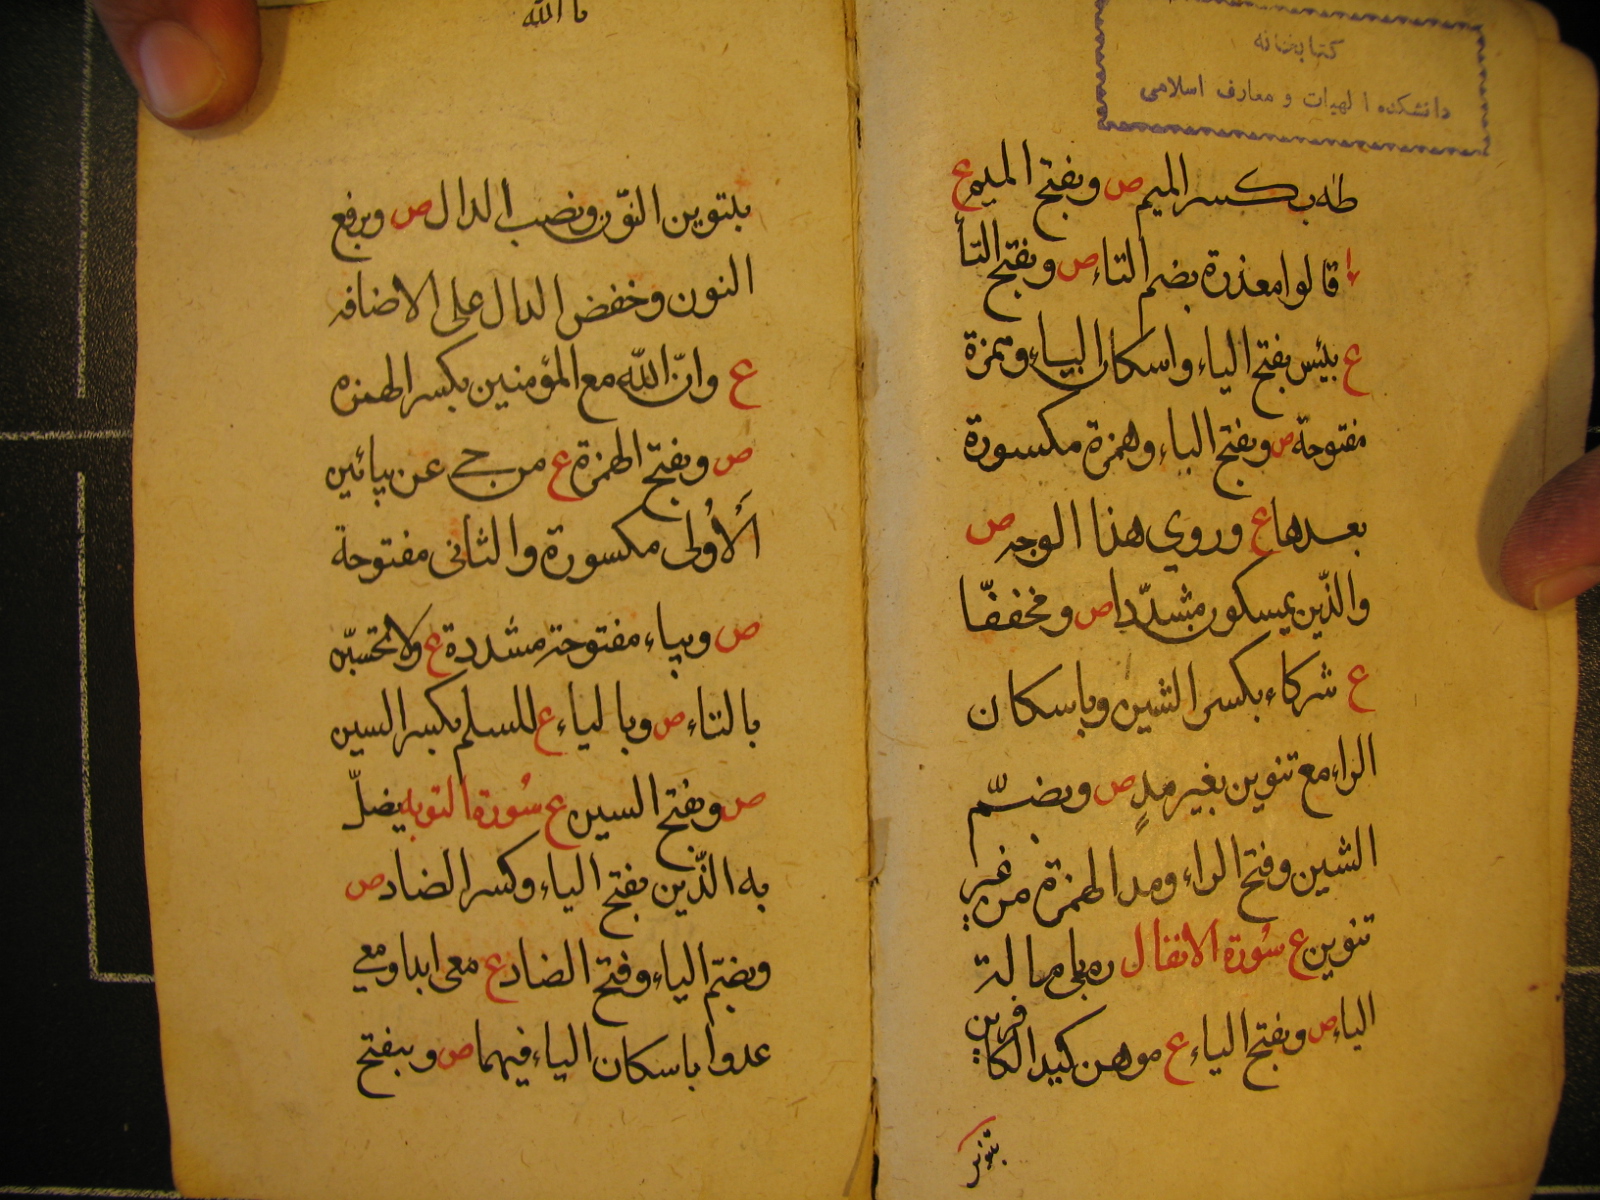 كتابخانه
دانشكده الهيات و معارف اسلامى
طه بكسر الميم ص وبفتح الميم ع
قالوا معذرة بضم التاء ص وبفتح التأ
ع بيئس بفتح الياء واسكان الياء وهمزة
مفتوحة ص وبفتح الباء وهمزة مكسورة
بعدها ع وروي هذا الوجه ص
والذّين يمسكون مشدّدا ص ومخففّا
ع شركاء بكسر الشين وباسكان
الراء مع تنوين بغير مدٍ ص وبضمّ
الشين وفتح الراء ومد الهمزة من غير
تنوين ع سُورة الانفال رمى بامالة
الياء ص وبفتح الياء ع موهن كيد الكافرين
بتنوين
ما الله
بتنوين النوّن ونصب الدال ص وبرفع
النون وخفض الدال على الاضافه
ع وانّ الله مع المؤمنين بكسر الهمزه
ص وبفتح الهمزة ع من حي عن بيائين
الَاُولى مكسورة والثانى مفتوحة
ص وبياء مفتوحة مشددة ع ولا تحسبّن
بالتاء ص وبالياء ع للسلم بكسر السين
ص وبفتح السين ع سُورة التوبه يضلّ
به الذّين بفتح الياء وكسر الضاد ص
وبضمّ الياء وفتح الضاد ع معى ابدا ومعي
عدوا باسكان الياء فيهما ص وبفتح